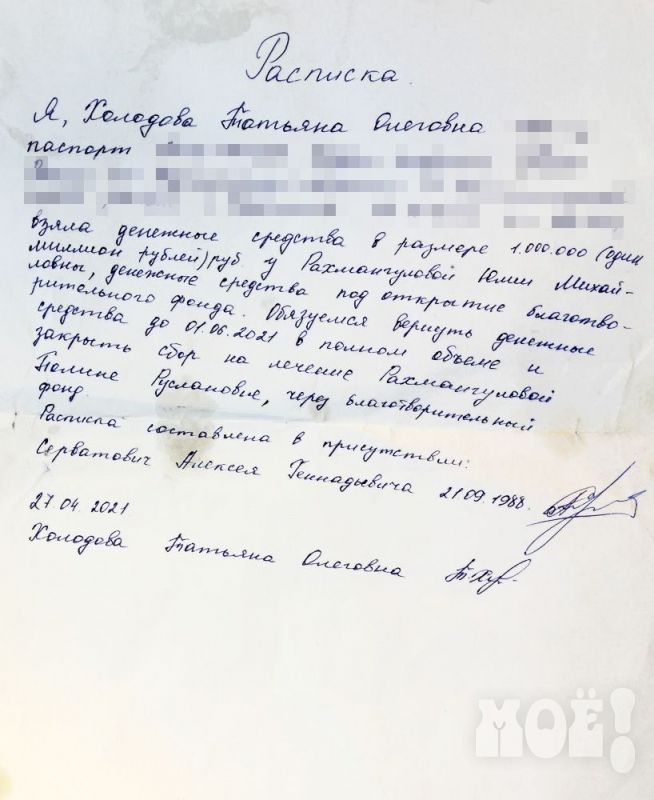 Расписка.
Я, Холодова Татьяна Олеговна
паспорт
взяла денежные средства в размере 1.000.000 (один
миллион рублей) руб. у Рахмангуловой Юлии Михай-
ловны, денежные средства под открытие благотво-
рительного фонда. Обязуемся вернуть денежные
средства до 01.06.2021 в полном объеме и
закрыть сбор на лечение Рахмангуловой
Полине Руслановне, через благотворительный
фонд.
Расписка составлена в присутствии:
Серватович Алексея Геннадьевича 21.09.1988.
27.04.2021
Холодова Татьяна Олеговна
МОЁ!